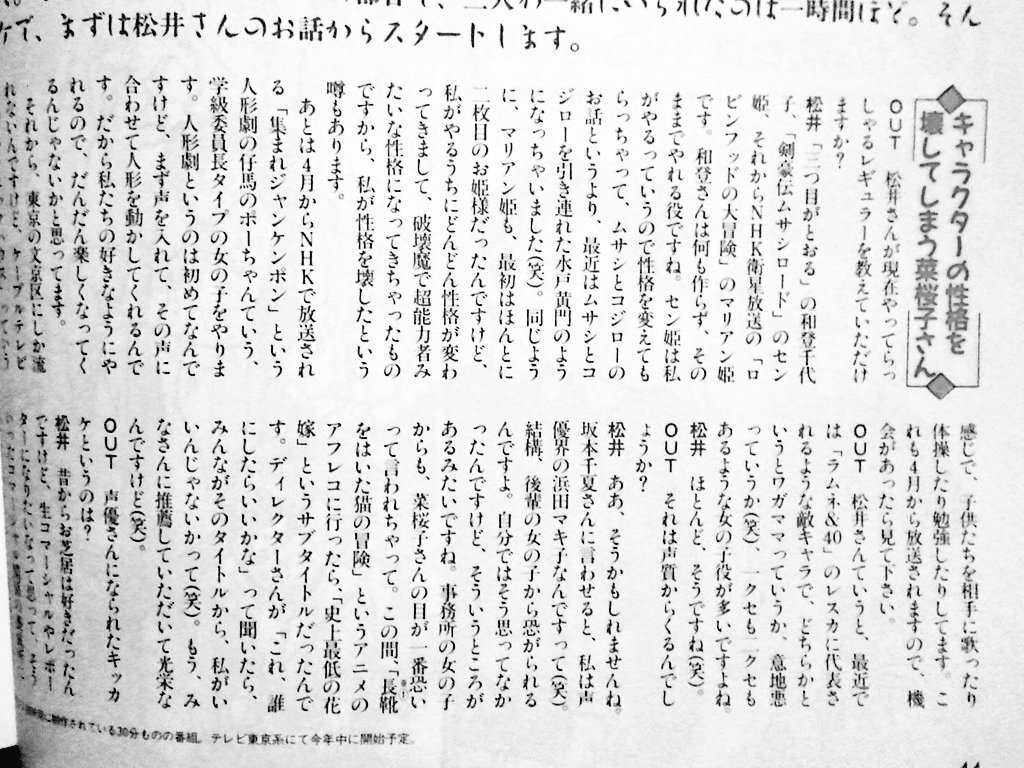 ケで、まずは松井さんのお話からスタートします。
一緒にいられたのは一時間ほど。そん
キャラクターの性格を
壊してしまう菜桜子さん
OUT　松井さんが現在やってらっ
しゃるレギュラーを教えていただけ
ますか?
松井　「三つ目がとおる」の和登千代
子、「剣豪伝ムサシロード」のセン
姫、それからNHK衛星放送の「ロ
ビンフッドの大冒険」のマリアン姫
です。和登さんは何も作らず、その
ままでやれる役ですね。セン姫は私
がやるっていうので性格を変えても
らっちゃって、ムサシとコジローの
お話というより、最近はムサシとコ
ジローを引き連れた水戸黄門のよう
になっちゃいました(笑)。同じよう
に、マリアン姫も、最初はほんとに
二枚目のお姫様だったんですけど、
私がやるうちにどんどん性格が変わ
ってきまして、破壊魔で超能力者み
たいな性格になってきちゃったもの
ですから、私が性格を壊したという
噂もあります。
あとは4月からNHKで放送され
る「集まれジャンケンポン」という
人形劇の仔馬のポーちゃんていう、
学級委員長タイプの女の子をやりま
す。人形劇というのは初めてなんで
すけど、まず声を入れて、その声に
合わせて人形を動かしてくれるんで
す。だから私たちの好きなようにや
れるので、だんだん楽しくなってく
るんじゃないかと思ってます。
それから、東京の文京区にしか流
れないんですけど、ケーブルテレビ
感じで、子供たちを相手に歌ったり
体操したり勉強したりしてます。こ
れも4月から放送されますので、機
会があったら見て下さい。
OUT　松井さんていうと、最近で
は「ラムネ&40」のレスカに代表さ
れるような敵キャラで、どちらかと
いうとワガママっていうか、意地悪
っていうか(笑)、一クセも二クセも
あるような女の子役が多いですよね。
松井　ほとんど、そうですね(笑)。
OUT　それは声質からくるんでし
ょうか?
松井　ああ、そうかもしれませんね。
坂本千夏さんに言わせると、私は声
優界の浜田マキ子なんですって(笑)。
結構、後輩の女の子から恐がられる
んですよ。自分ではそう思ってなか
ったんですけど、そういうところが
あるみたいですね。事務所の女の子
からも、菜桜子さんの目が一番恐い
って言われちゃって。この間、「長靴
をはいた猫の冒険」というアニメの
アフレコに行ったら、「史上最低の花
嫁」というサブタイトルだったんで
す。ディレクターさんが「これ、誰
にしたらいいかな」って聞いたら、
みんながそのタイトルから、私がい
いんじゃないかって(笑)。もう、み
なさんに推薦していただいて光栄な
んですけど(笑)。
OUT　声優さんになられたキッカ
ケというのは?
松井　昔からお芝居は好きだったん
ですけど、生コマーシャルやレポー
ターになりたいなって思って、そう
制作されている30分ものの番組。テレビ東京系にて今年中に開始予定。